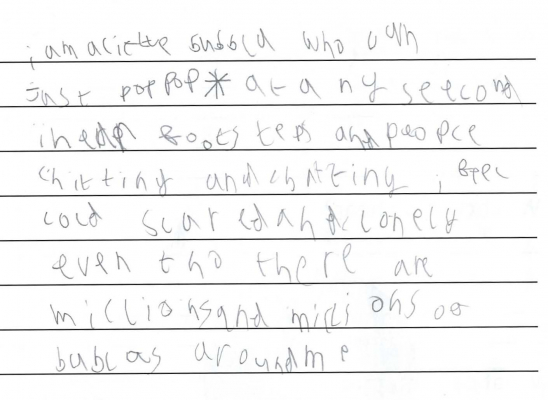 i am a little bubbla who can
Just pop pop* at any seecond
i hear footsteps and people
chitting and chatting i feel
cold scared and lonely
even tho there are
millions and millions of
bublas around me